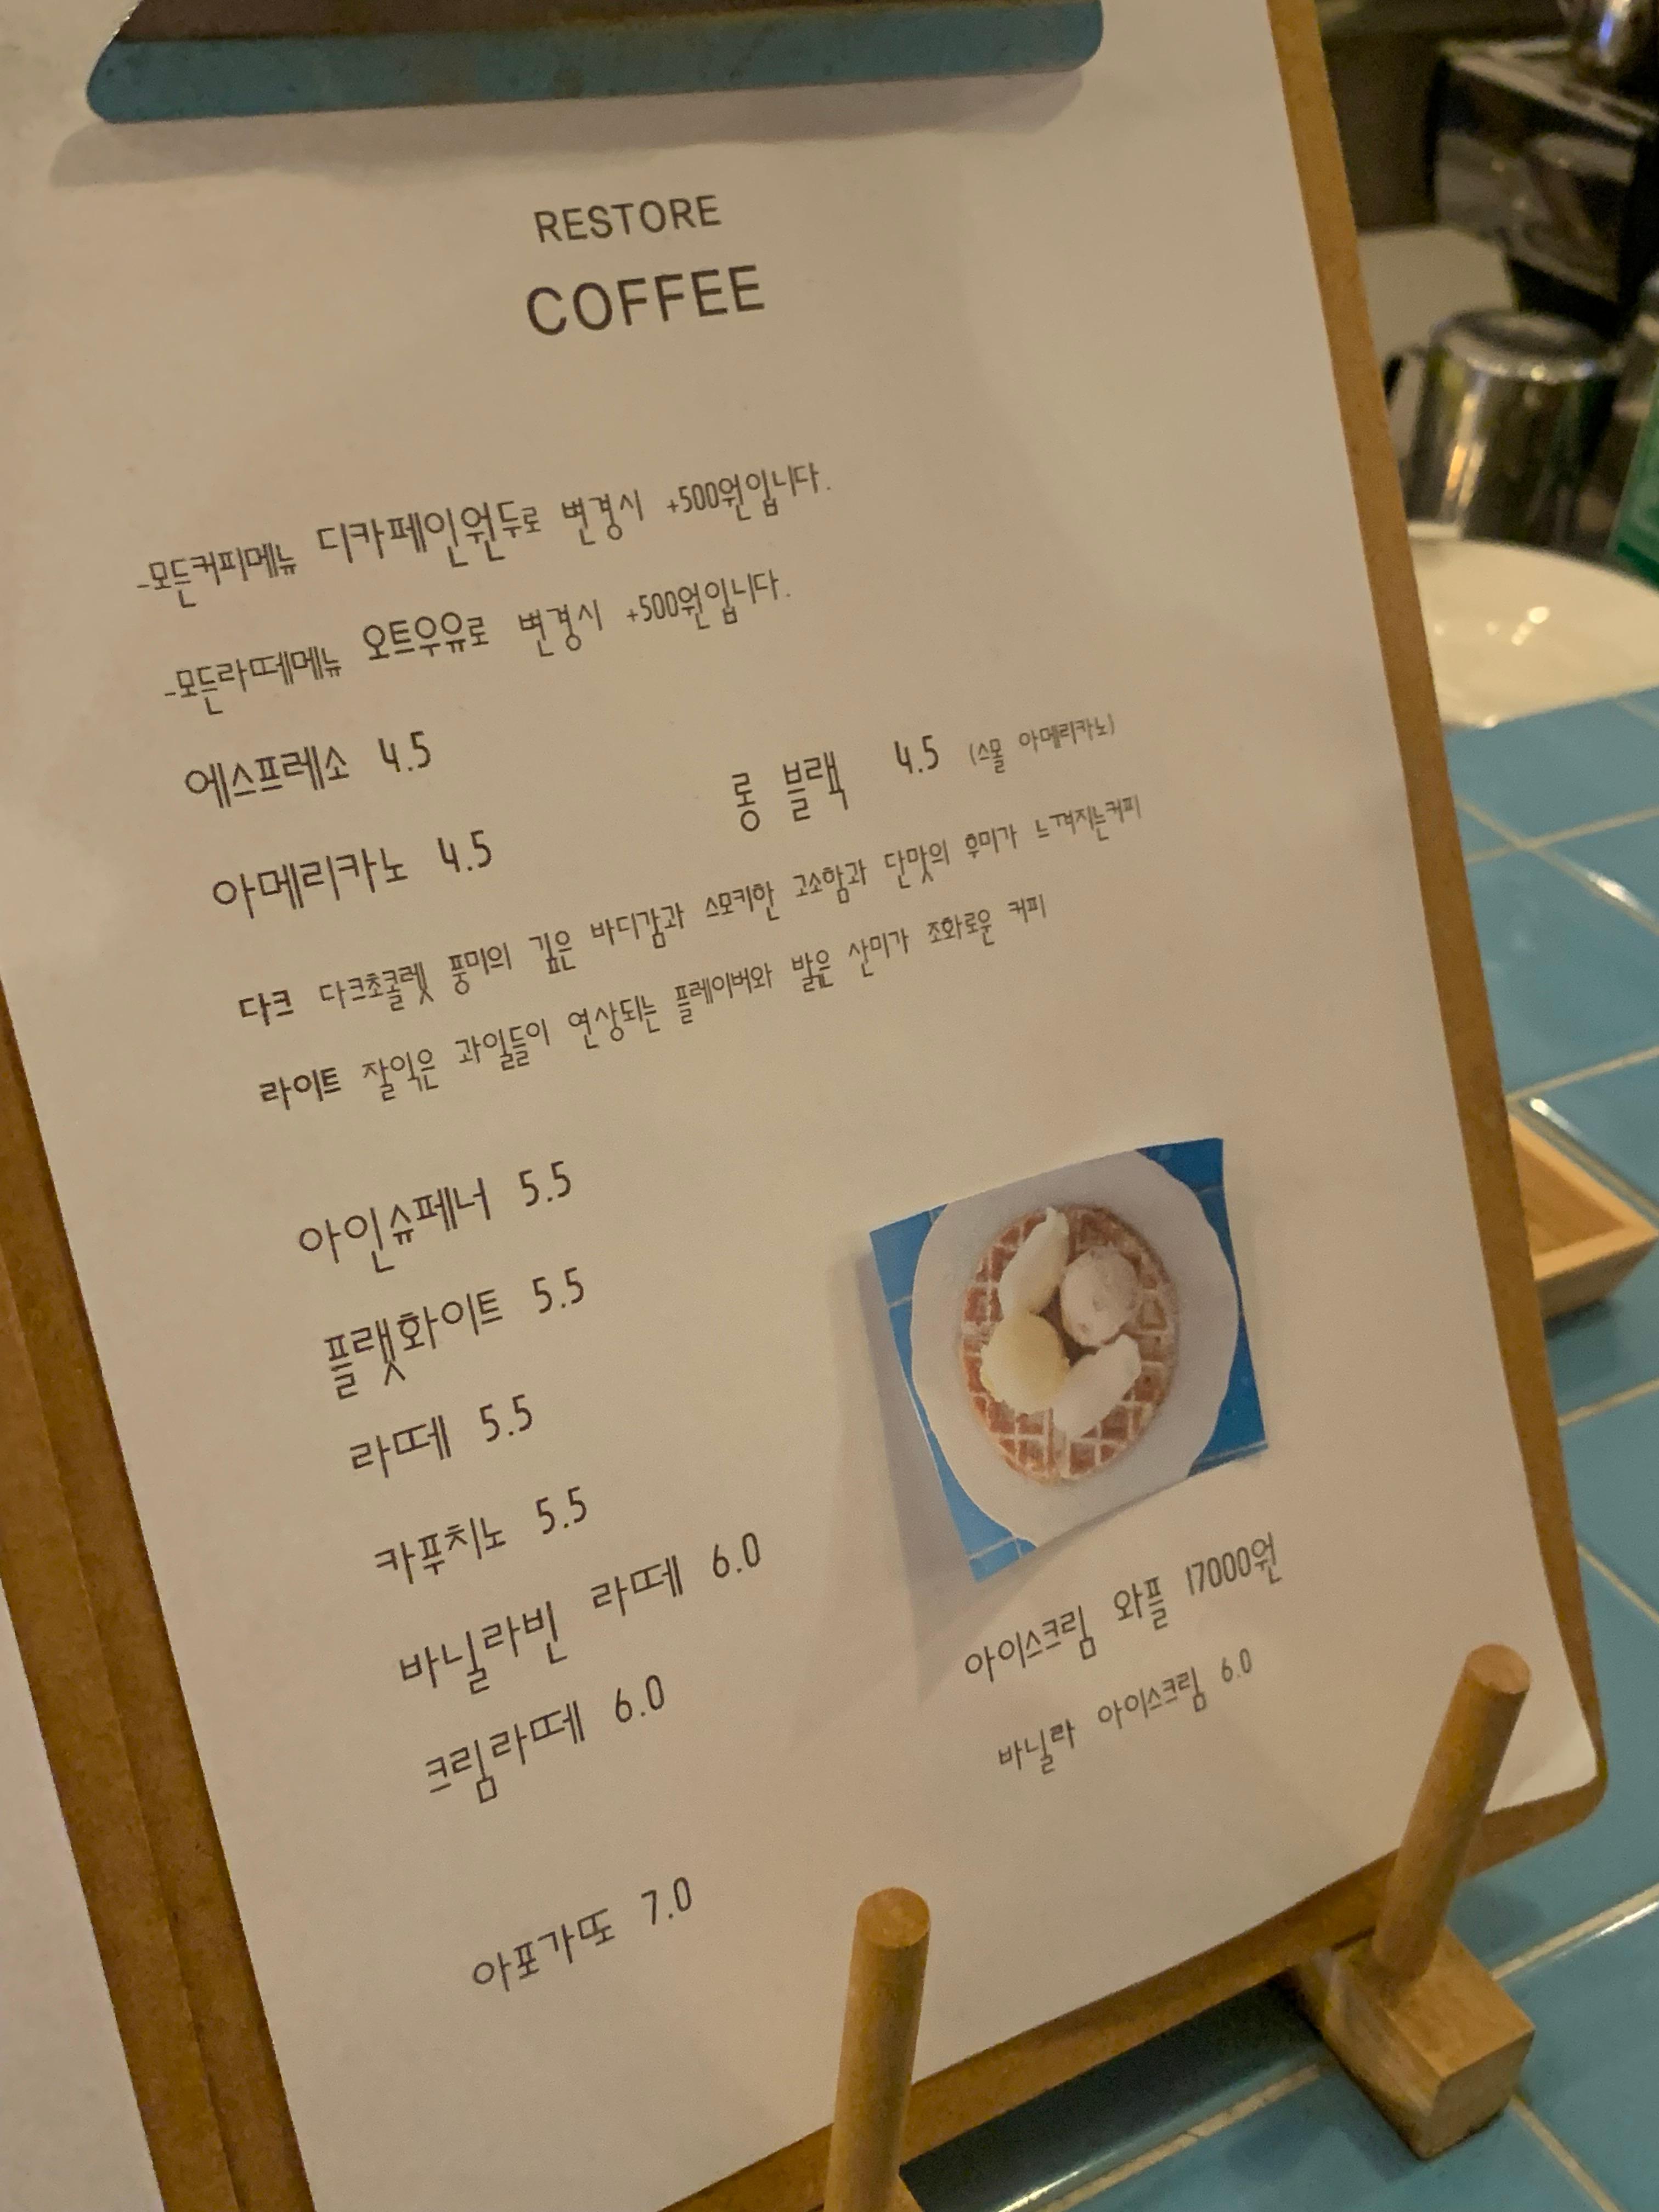 RESTORE
COFFEE
-모든커피메뉴 디카페인원두로 변경시 +500원입니다.
-모든라떼메뉴 오트우유로 변경시 +500원입니다.
에스프레소 4.5
롱 블랙 4.5 (스몰 아메리카노)
아메리카노 4.5
다크 다크초콜렛 풍미의 깊은 바디감과 스모키한 고소함과 단맛의 후미가 느껴지는커피
라이트 잘익은 과일들이 연상되는 플레이버와 밝은 산미가 조화로운 커피
아인슈페너 5.5
플랫화이트 5.5
라떼 5.5
카푸치노 5.5
바닐라빈 라떼 6.0
크림라떼 6.0
아포가또 7.0
아이스크림 와플 17000원
바닐라 아이스크림 6.0